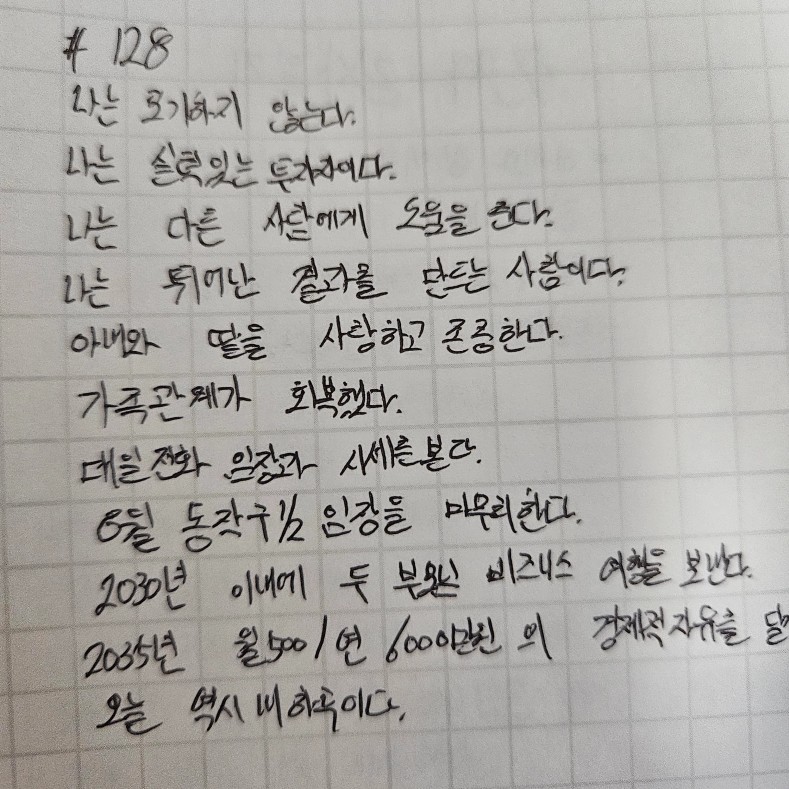 # 128
나는 포기하지 않는다.
나는 실력있는 투자자이다.
나는 다른 사람에게 도움을 준다.
나는 뛰어난 결과를 만드는 사람이다.
아내와 딸을 사랑하고 존중한다.
가족관계가 회복했다.
매일 전화 임장과 시세를 본다.
8월 동작구 1/2 임장을 마무리한다.
2030년 이내에 두 부모님 비즈니스 여행을 보낸다.
2035년 월500/연 6000만원의 경제적자유를
오늘 역시 내 하루이다.